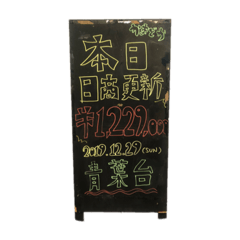 本日
日商更新
¥1,229,000
2019.12.29 (SUN)
青葉台